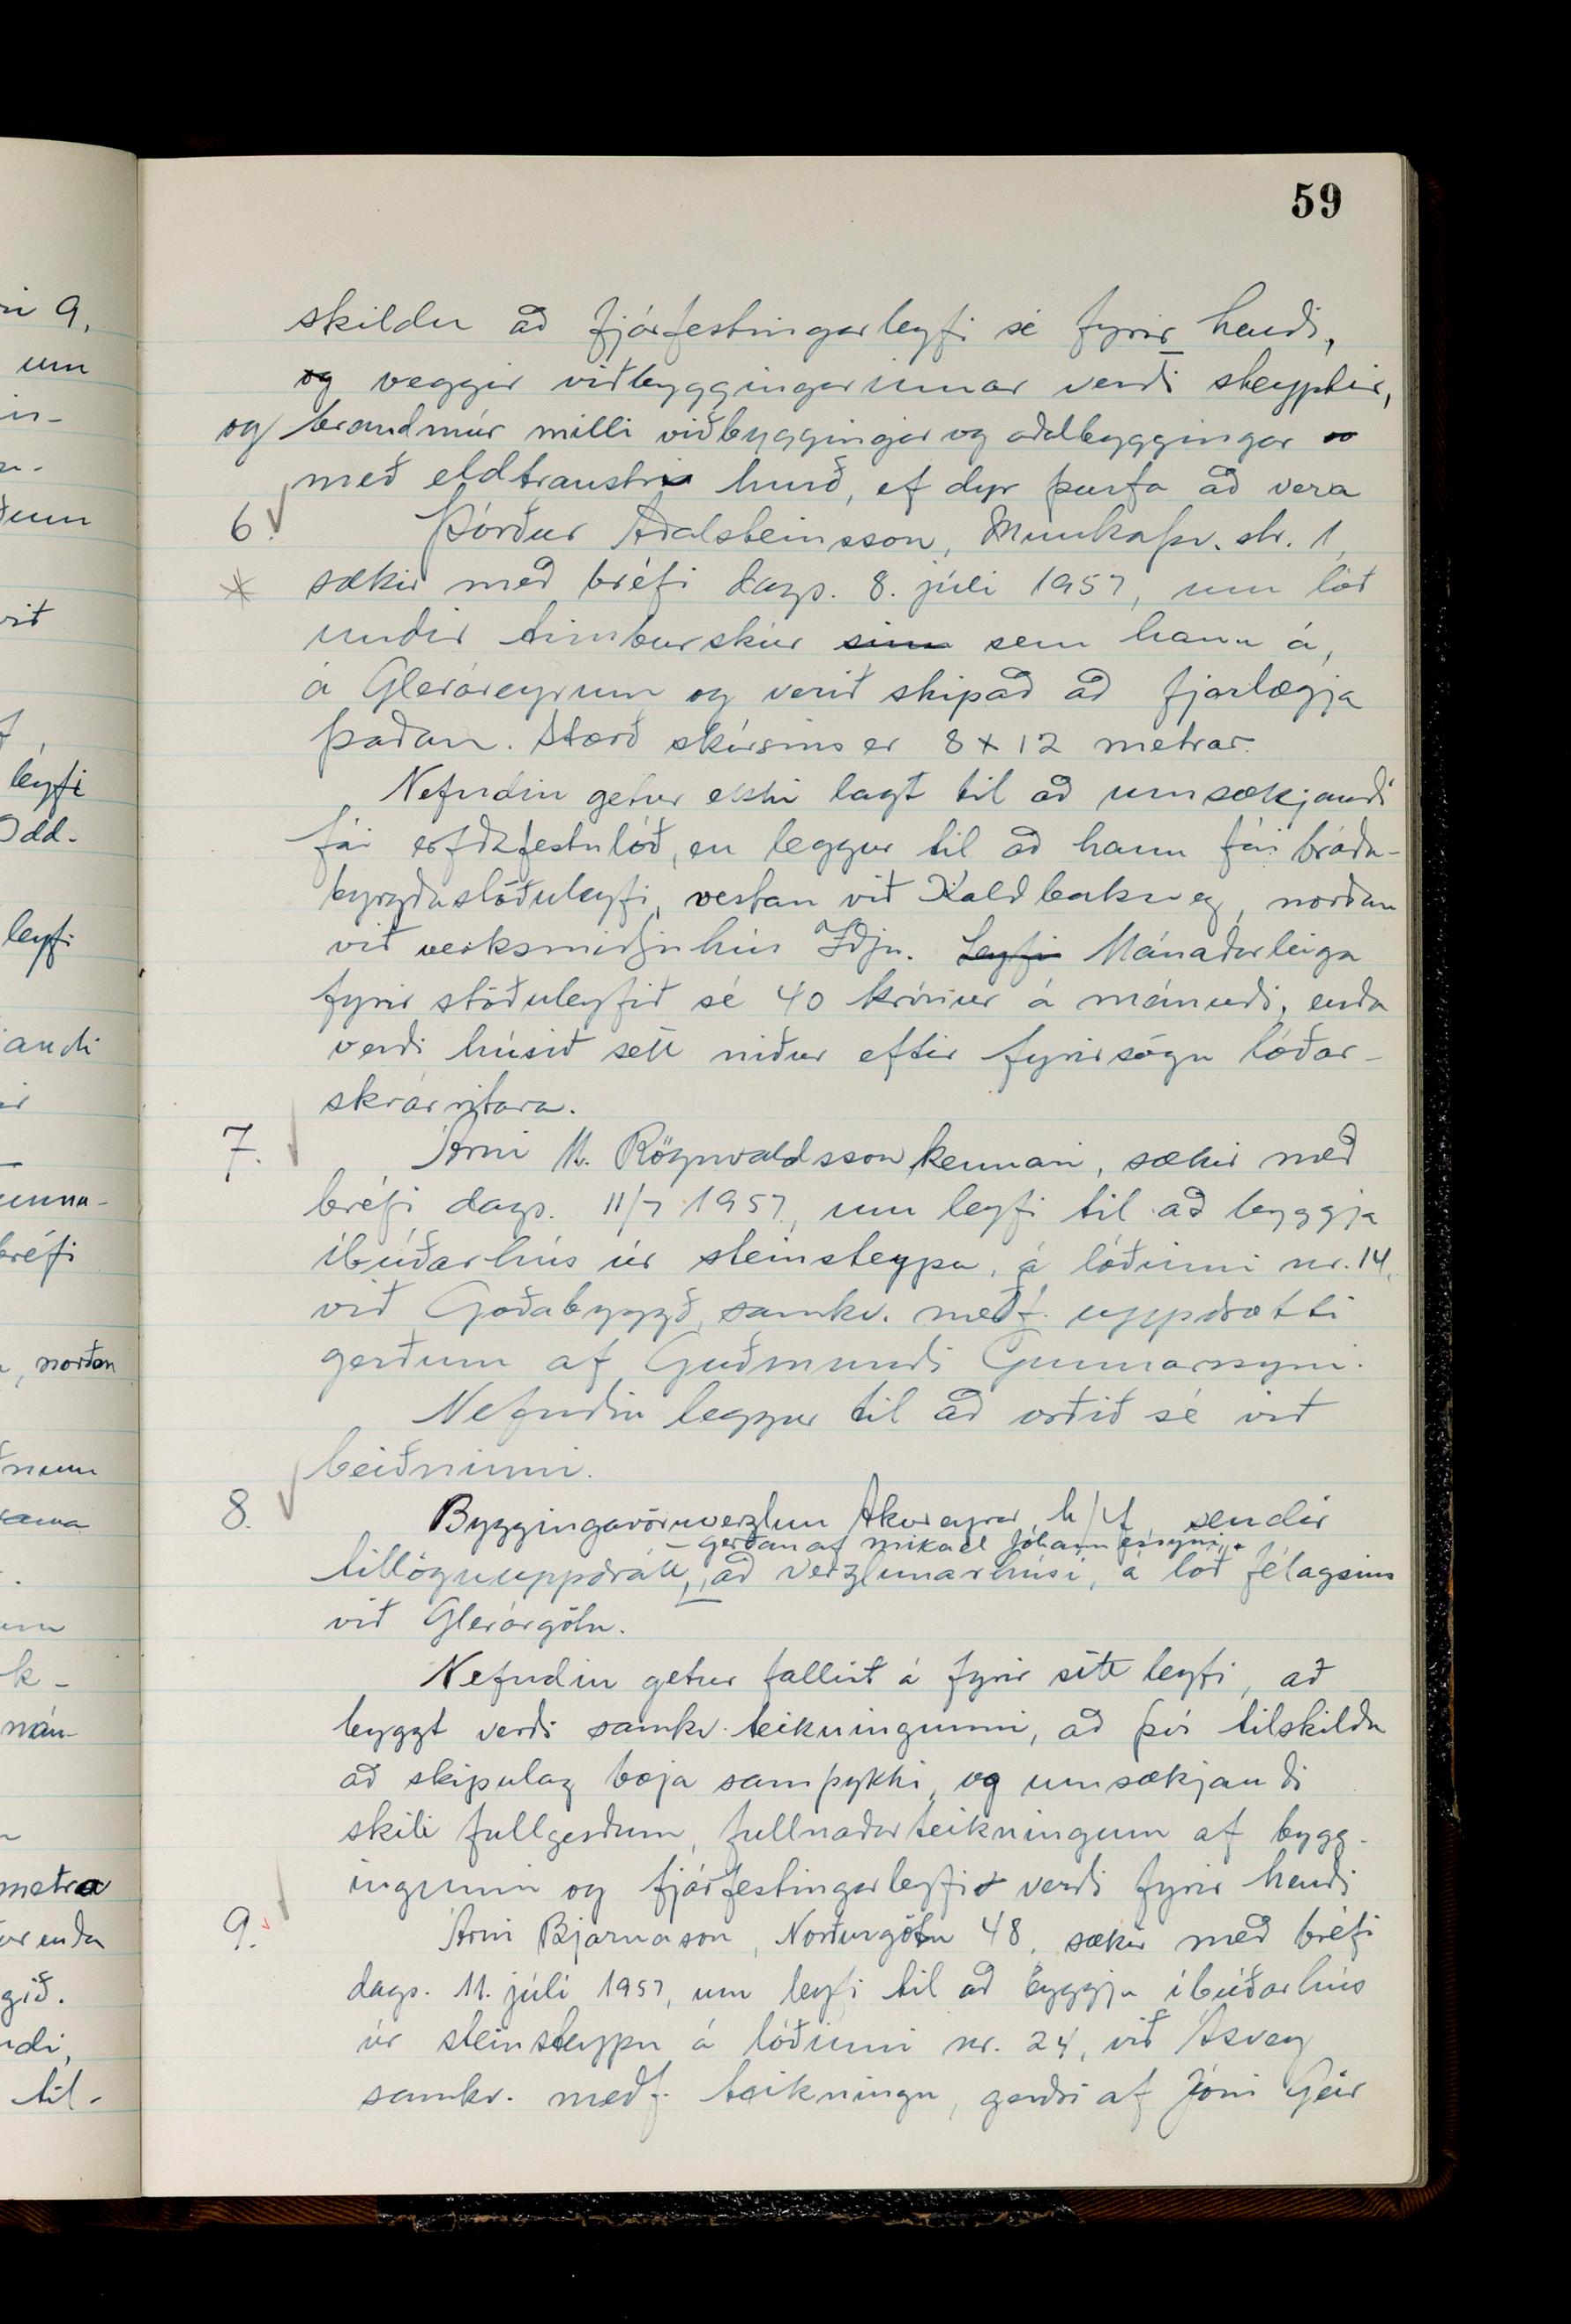 59
skildu að fjárfestingarleyfi sé fyrir hendi,
og veggir viðbyggingarinnar verði steyptir,
og brandmúr milli viðbyggingar og aðalbyggingar
með eldtraustri hurð, ef dyr þurfa að vera
6. Þórður Aðalsteinsson, Munkaþv. str. 1,
sækir með bréfi dags. 8. júlí 1957, um lóð
undir timburskúr sinn sem hann á,
á Gleráreyrum og verið skipað að fjarlægja
þaðan. Stærð skúrsins er 8 x 12 metrar.
Nefndin getur ekki lagt til að umsækjandi
fái erfðafestulóð, en leggur til að hann fái bráða-
byrgðastöðuleyfi, vestan við Kaldbaksveg, norðan
við verksmiðjuhús Iðju. Leyfi Mánaðarleiga
fyrir stöðuleyfið sé 40 krónur á mánuði, enda
verði húsið sett niður eftir fyrirsögn lóðar-
skrárritara.
7. Árni M. Rögnvaldsson kennari, sækir með
bréfi dags. 11/7 1957, um leyfi til að byggja
íbúðarhús úr steinsteypu, á lóðinni nr. 14,
við Goðabyggð, samkv. meðf. uppdrætti
gerðum af Guðmundi Gunnarssyni.
Nefndin leggur til að orðið sé við
beiðninni.
8. Byggingavöruverzlun Akureyrar h/f sendir
- gerðan af Mikael Jóhannessyni -
tillöguuppdrátt, að verzlunarhúsi, á lóð félagsins
við Glerárgötu.
Nefndin getur fallist á fyrir sitt leyti, að
byggt verði samkv. teikningunni, að því tilskildu
að skipulag bæja samþykki, og umsækjandi
skili fullgerðum, fullnaðarteikningum af bygg-
ingunni og fjárfestingarleyfið verði fyrir hendi
9. Árni Bjarnason, Norðurgötu 48, sækir með bréfi
dags. 11. júlí 1957, um leyfi til að byggja íbúðarhús
úr steinsteypu á lóðinni nr. 24, við Ásveg
samkv. meðf. teikningu, gerðri af Jóni Geir